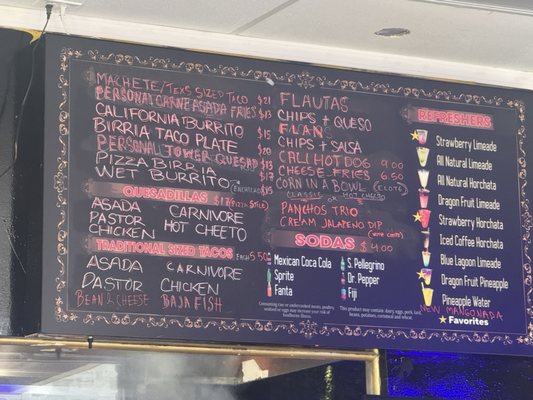 MACHETE/TEXS SIZED TACO $21
PERSONAL CARNE ASADA FRIES $13
CALIFORNIA BURRITO
BIRRIA TACO PLATE $15
PERSONAL TOWER QUESAD
PIZZA BIRRIA
WET BURRITO
QUESADILLAS
ASADA CARNIVORE
PASTOR HOT CHEETO
CHICKEN
TRADITIONAL SIZED TACOS EACH 5.50
ASADA CARNIVORE
PASTOR CHICKEN
BEAN & CHEESE BAJA FISH
FLAUTAS
CHIPS + QUESO
FLANS
CHIPS + SALSA
CALI HOT DOG 9.00
CHEESE FRIES 6.50
CORN IN A BOWL (ELOTE)
CLASSIC or HOT CHEETO
PANCHOS TRIO
CREAM JALAPENO DIP
SODAS $4.00
Mexican Coca Cola
Sprite
Fanta
S. Pellegrino
Dr. Pepper
Fiji
Consuming raw or undercooked meats, poultry,
seafood or eggs may increase your risk of
foodborne illness.
This product may contain dairy, eggs, pork, lard,
beans, potatoes, cornmeal and wheat.
REFRESHERS
Strawberry Limeade
All Natural Limeade
All Natural Horchata
Dragon Fruit Limeade
Strawberry Horchata
Iced Coffee Horchata
Blue Lagoon Limeade
Dragon Fruit Pineapple
Pineapple Water
NEW MANGONADA
Favorites